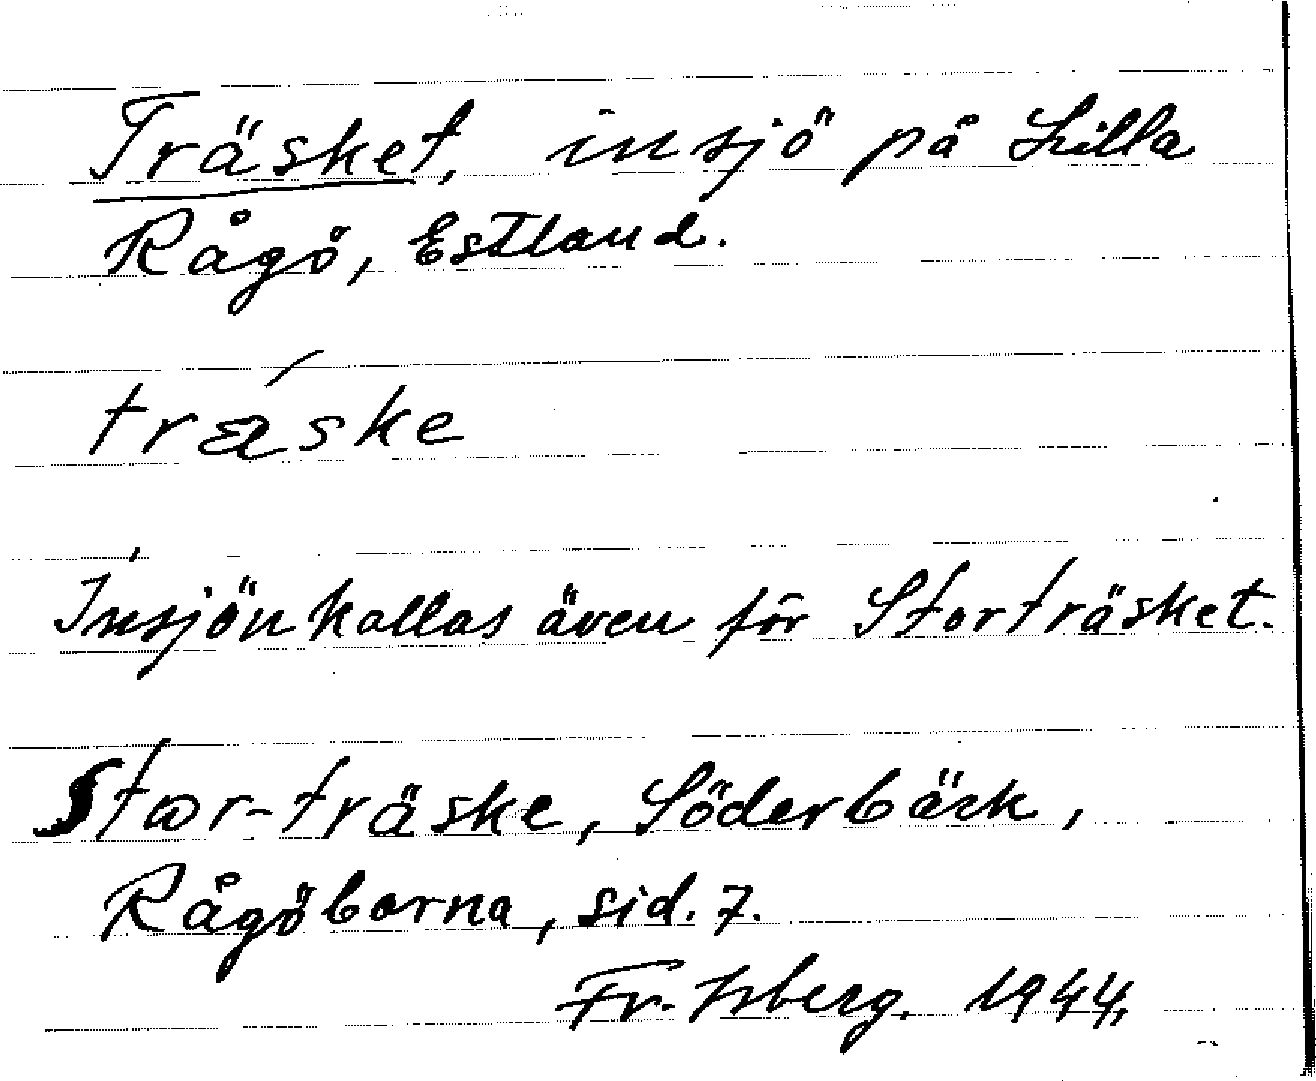 Träsket, insjö på Lilla
Rågö, Estland.
trǽske
Insjön kallas även för Storträsket.
Stor-träske, Söderbäck,
Rågöborna, sid. 7.
Fr. Isberg. 1944.